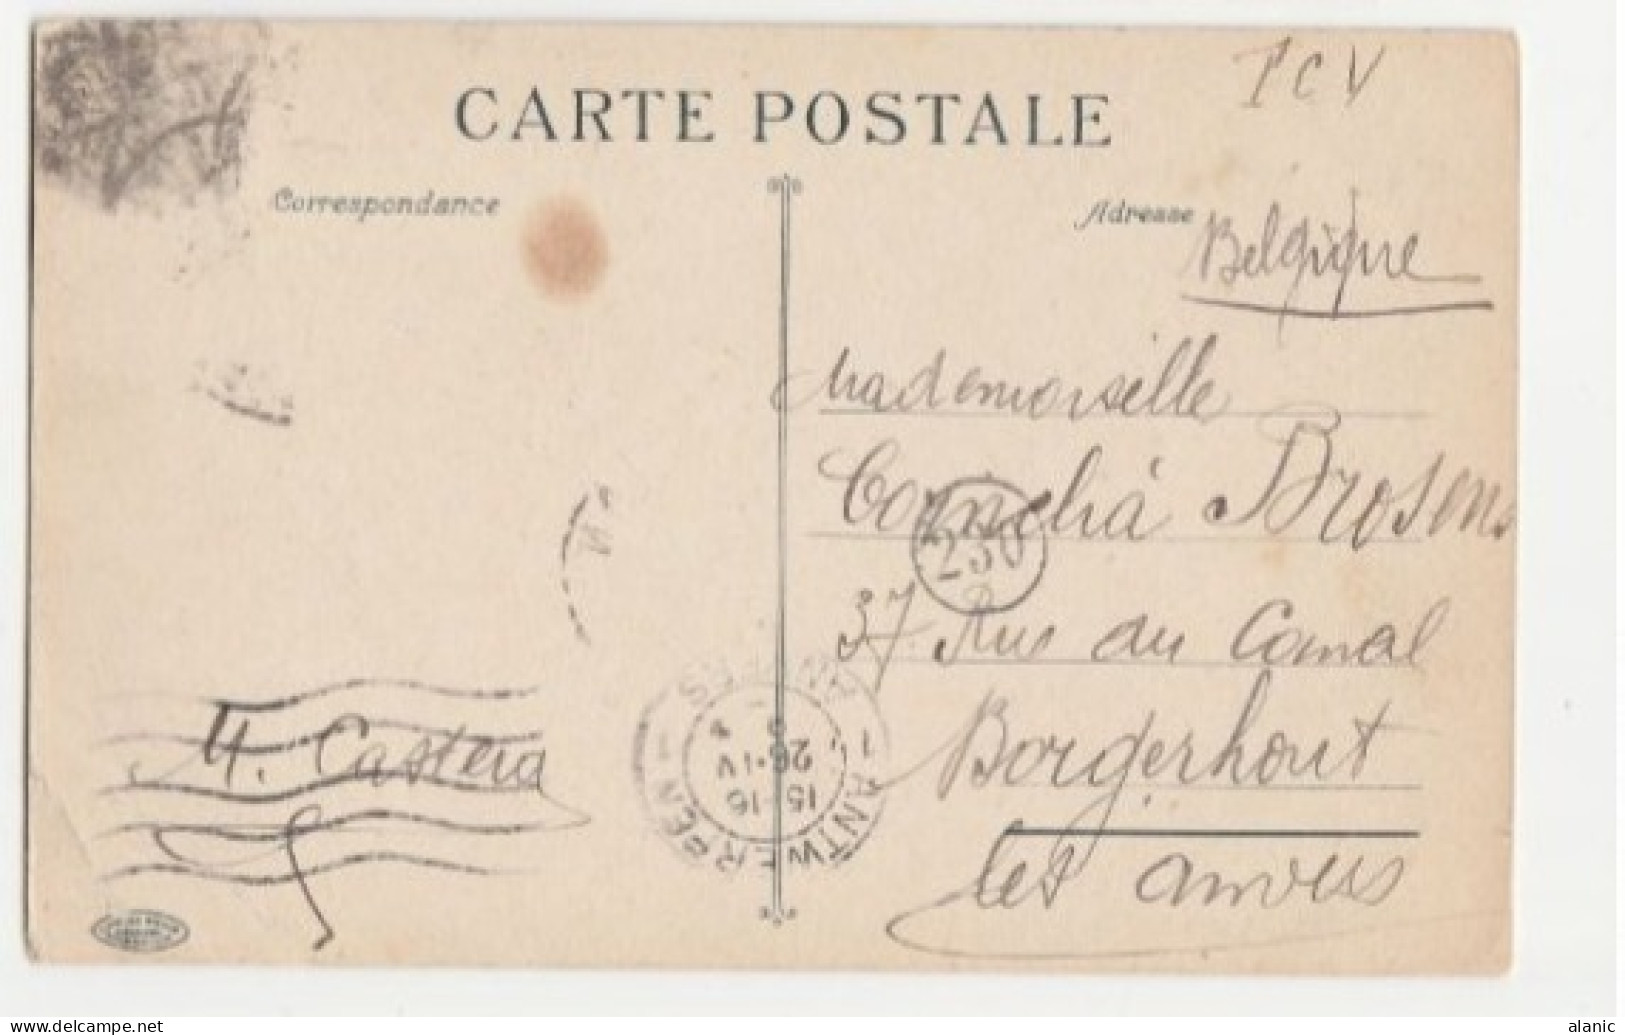 T C V
CARTE POSTALE
Correspondance
Adresse
Belgique
Mademoiselle
Cornelia Brosens
37 Rue du Canal
Borgerhout
les anvers
M. Castera
ANTWERPEN
15-16
26-IV
www.delcampe.net
alanic